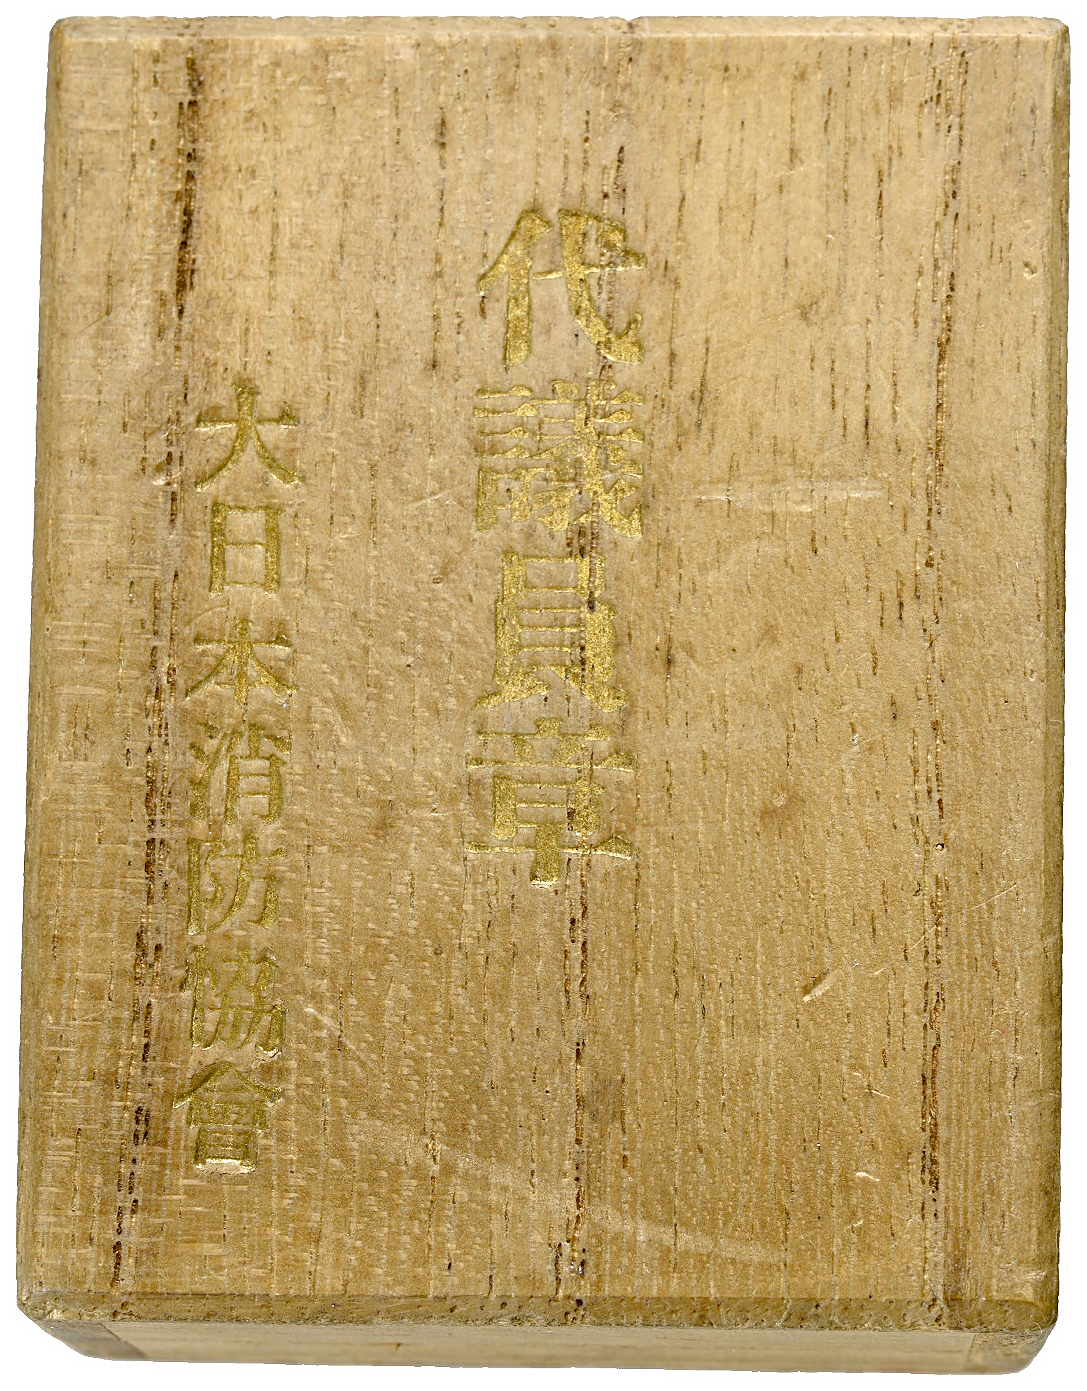 代議員章
大日本消防協會